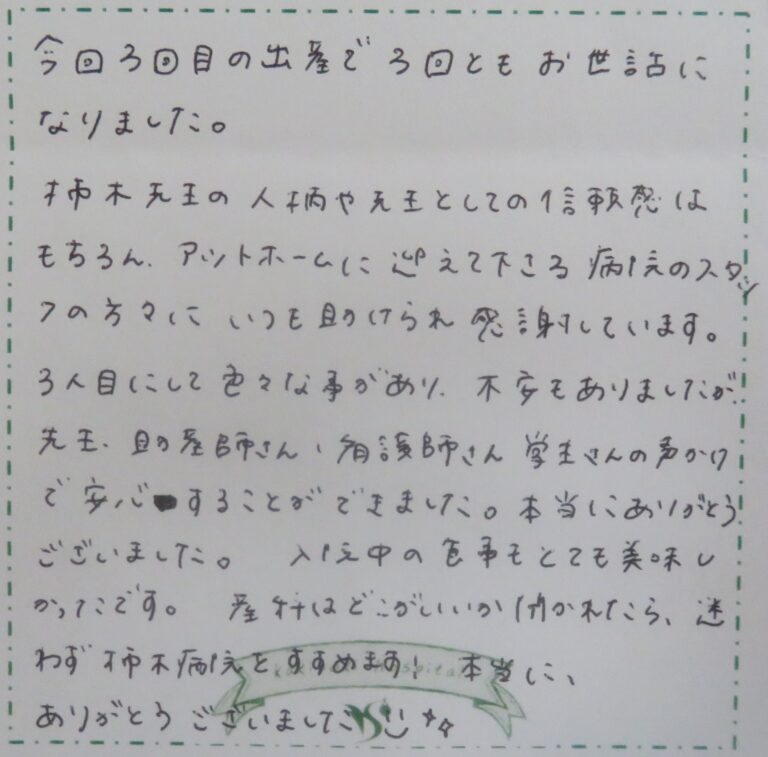 今回3回目の出産で 3回とも お世話に
なりました。
柿木先生の 人柄や先生としての信頼感は
もちろん、アットホームに 迎えて下さる 病院のスタッ
フの方々に いつも助けられ 感謝しています。
3人目にして 色々な事があり、不安もありましたが、
先生、助産師さん、看護師さん 学生さんの声かけ
で 安心することができました。本当にありがとう
ございました。 入院中の食事もとても美味し
かったです。 産科はどこがいいか 聞かれたら、迷
わず 柿木病院をすすめます! 本当に、
ありがとう ございました